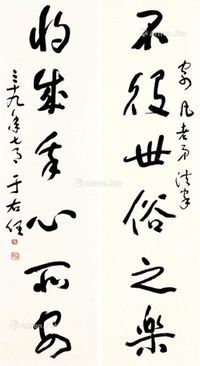 凡老弟法家
不役世俗之樂
將成吾心所安
三十九年七月 于右任